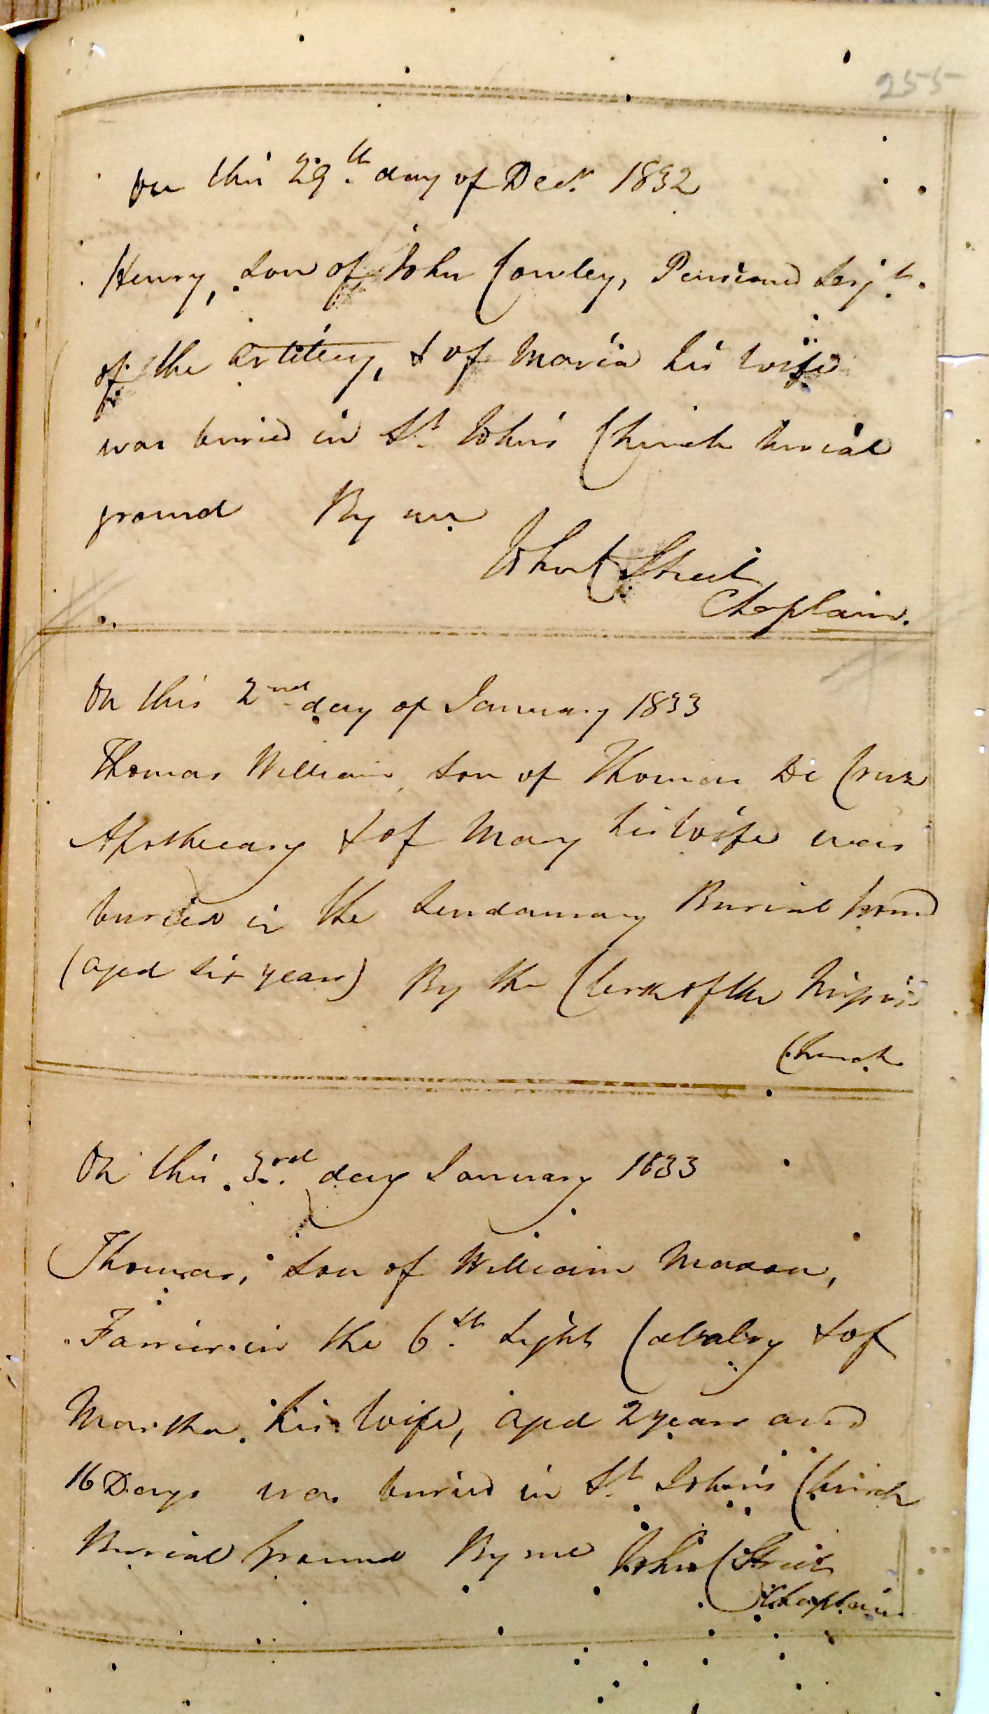 255
On this 29th day of Decr 1832
Henry, son of John Cowley, Pensioned Serjt
of the Artillery, & of Maria his wife
was buried in St John's Church burial
ground By me
John C Street
Chaplain.
On this 2nd day of January 1833
Thomas William son of Thomas De Cruz
Apothecary & of Mary his wife was
buried in the Burial Ground
(aged six years) By the Clerk of the
Church
On this 3rd day January 1833
Thomas, son of William Mason,
Farrier in the 6th Light Cavalry & of
Martha his wife, aged 2 years and
16 Days was buried in St John's Church
Burial Ground By me John C Street
Chaplain